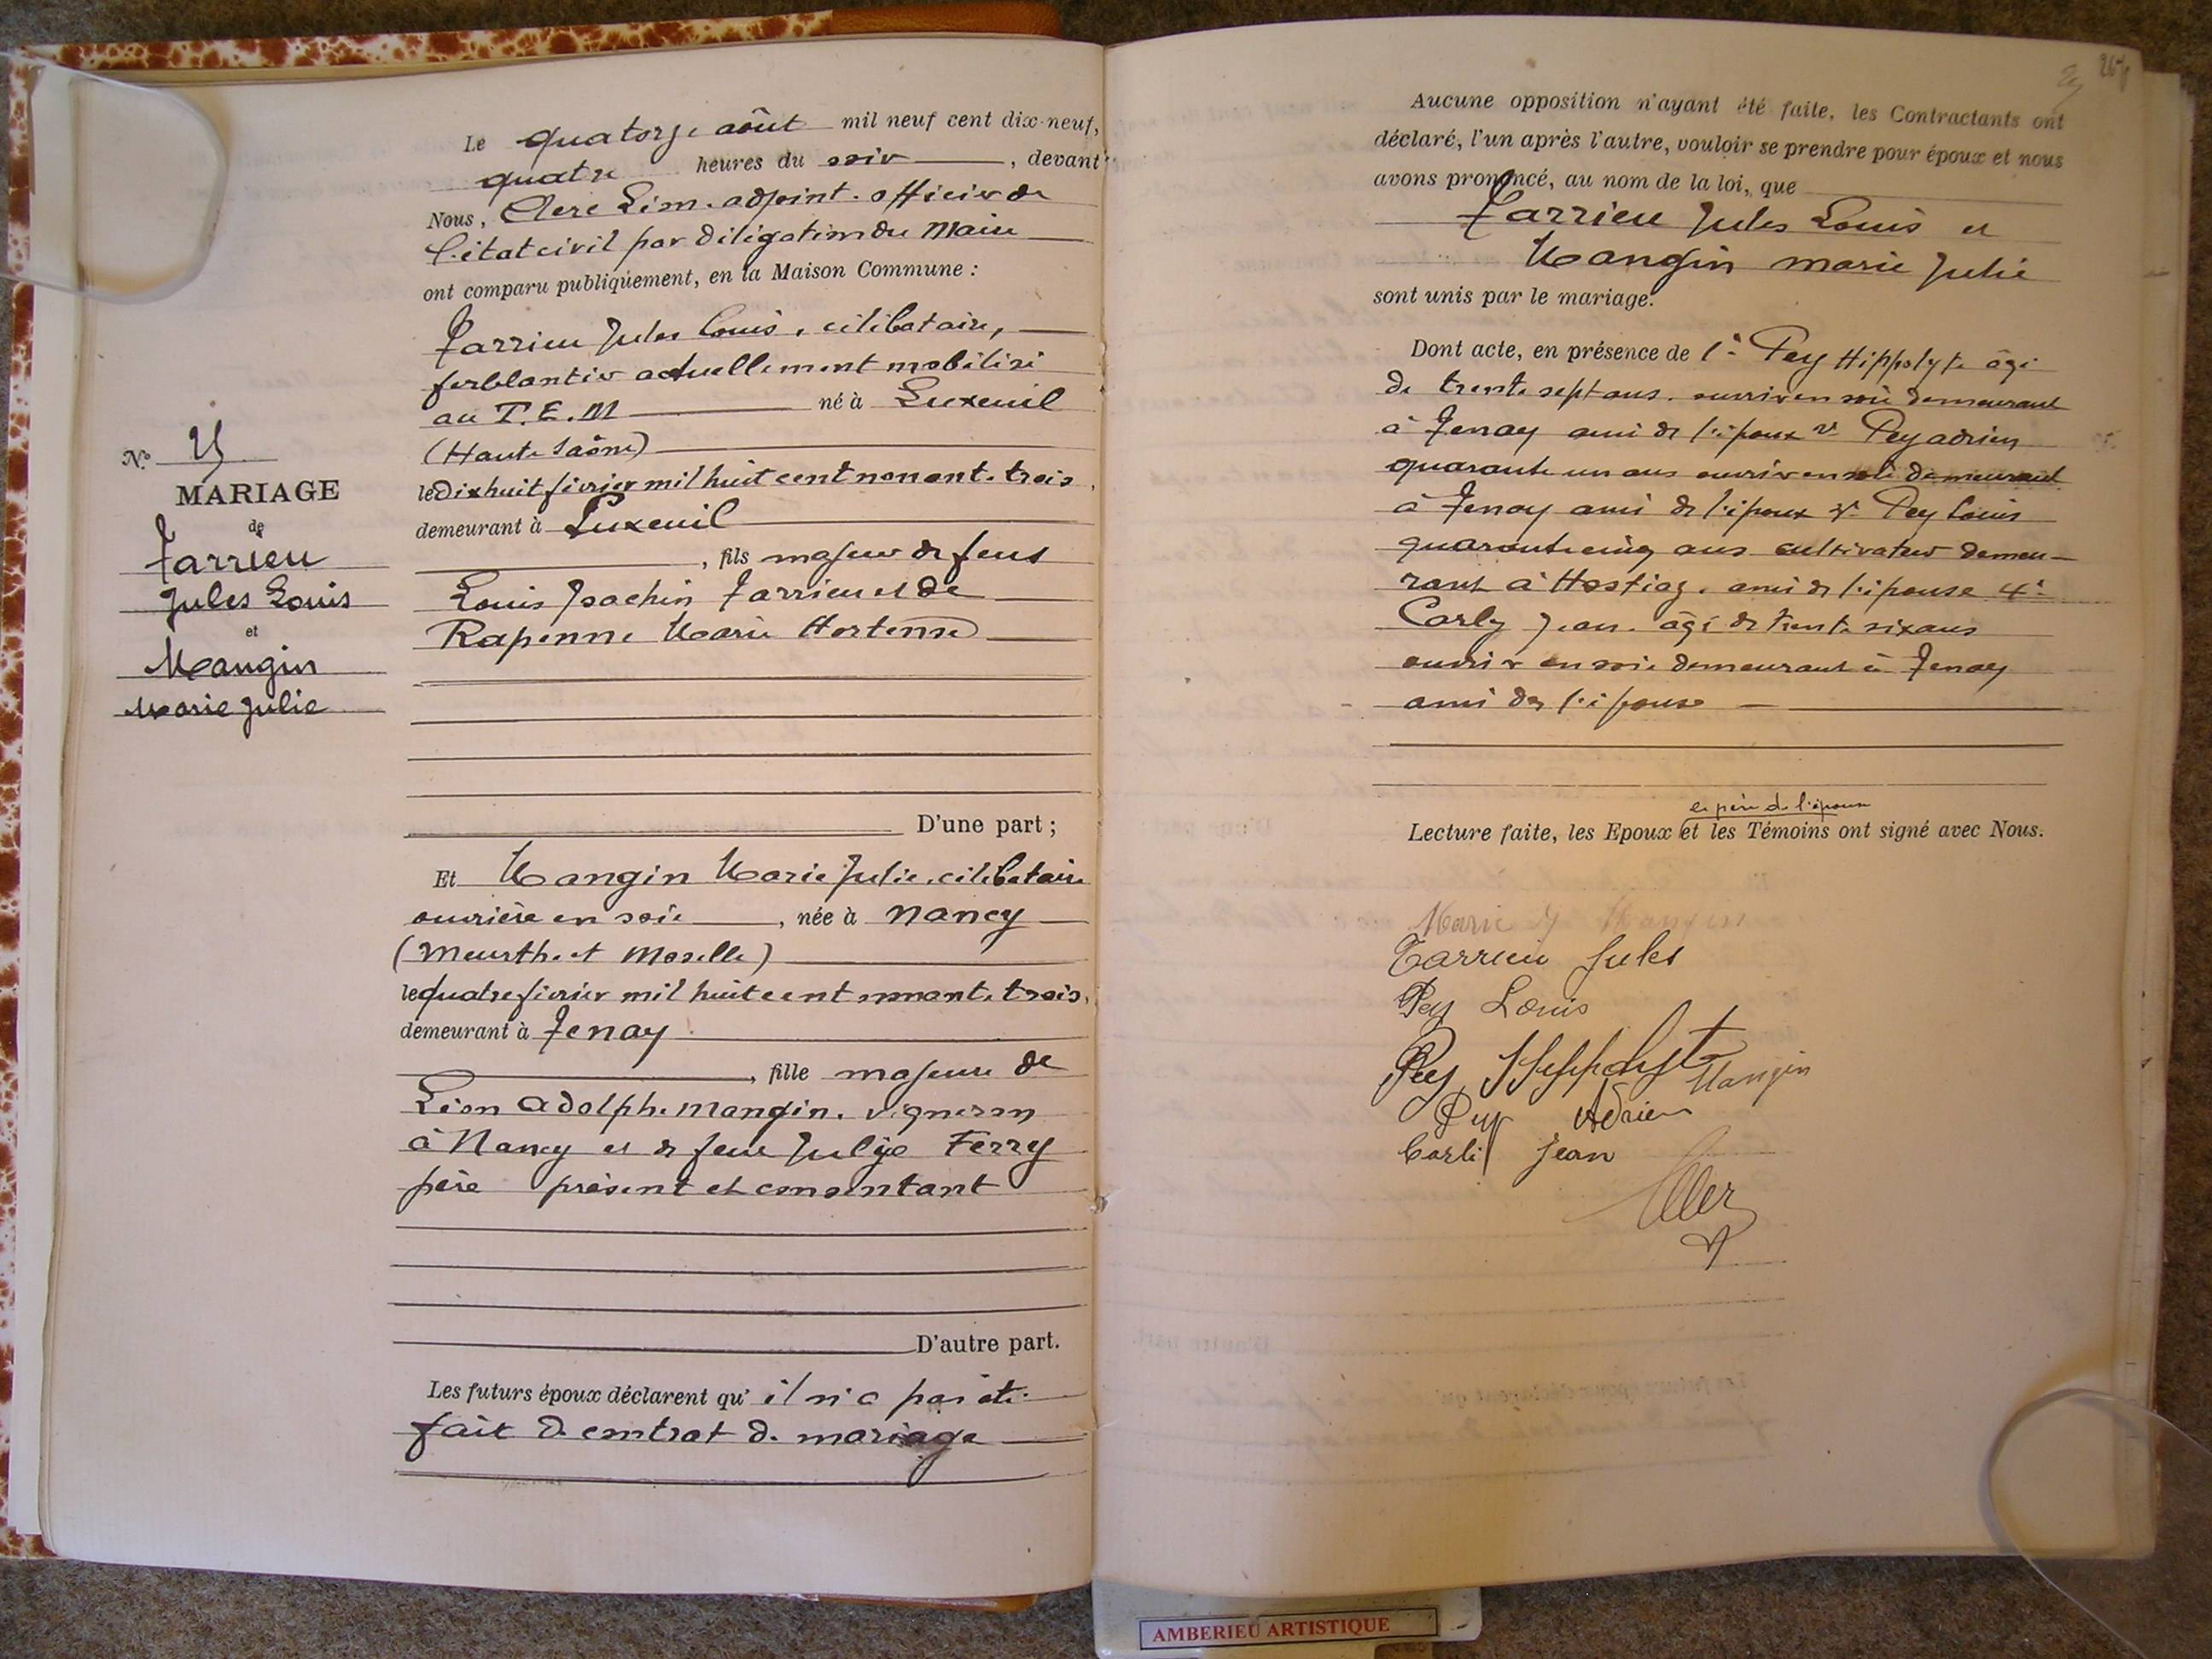 Le quatorze août mil neuf cent dix-neuf,
quatre heures du soir, devant
Nous, Clerc Léon. adjoint. officier de
l'état civil par délégation du Maire
ont comparu publiquement, en la Maison Commune :
Tarrieu Jules Louis, célibataire,
ferblantier actuellement mobilisé
au T.E.M né à Luxeuil
(Haute Saône)
le dix huit février mil huit cent nonante-trois,
demeurant à Luxeuil
, fils majeur de feus
Louis Joachin Tarrieu et de
Rapenne Marie Hortense
D'une part ;
Nº
MARIAGE
de
Tarrieu
Jules Louis
et
Mangin
Marie Julie
Et Mangin Marie Julie, célibataire
ouvrière en soie, née à Nancy
(Meurthe et Moselle)
le quatre février mil huit cent nonante trois,
demeurant à Tenay
, fille majeure de
Léon Adolphe Mangin. vigneron
à Nancy et de feue Julie Ferry
père présent et consentant
D'autre part.
Les futurs époux déclarent qu'il n'a pas été
fait de contrat de mariage
Aucune opposition n'ayant été faite, les Contractants ont
déclaré, l'un après l'autre, vouloir se prendre pour époux et nous
avons prononcé, au nom de la loi, que
Tarrieu Jules Louis et
Mangin Marie Julie
sont unis par le mariage.
Dont acte, en présence de 1º Pey Hippolyte âgé
de trente sept ans. ouvrier en soie demeurant
à Tenay ami de l'époux 2º Pey Adrien
quarante un ans ouvrier en soie demeurant
à Tenay ami de l'époux 3º Pey Louis
quarante cinq ans cultivateur demeu-
rant à Hostiaz. ami de l'épouse 4º
Carly Jean. âgé de trente six ans
ouvrier en soie demeurant à Tenay
ami de l'épouse
et père de l'épouse
Lecture faite, les Epoux et les Témoins ont signé avec Nous.
Marie J Mangin
Tarrieu Jules
Pey Louis
Pey Hippolyte
Mangin
Pey Adrien
Carli Jean
Clerc
AMBERIEU ARTISTIQUE